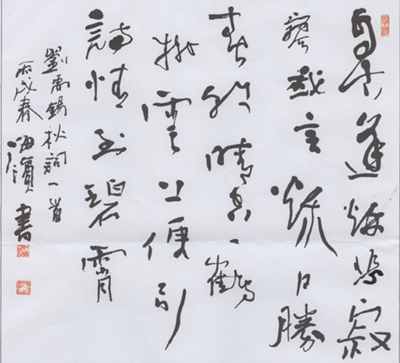 自古逢秋悲寂
寥我言秋日勝
春朝晴空一鶴
排雲上便引
詩情到碧霄
劉禹錫秋詞一首
丙戌春書